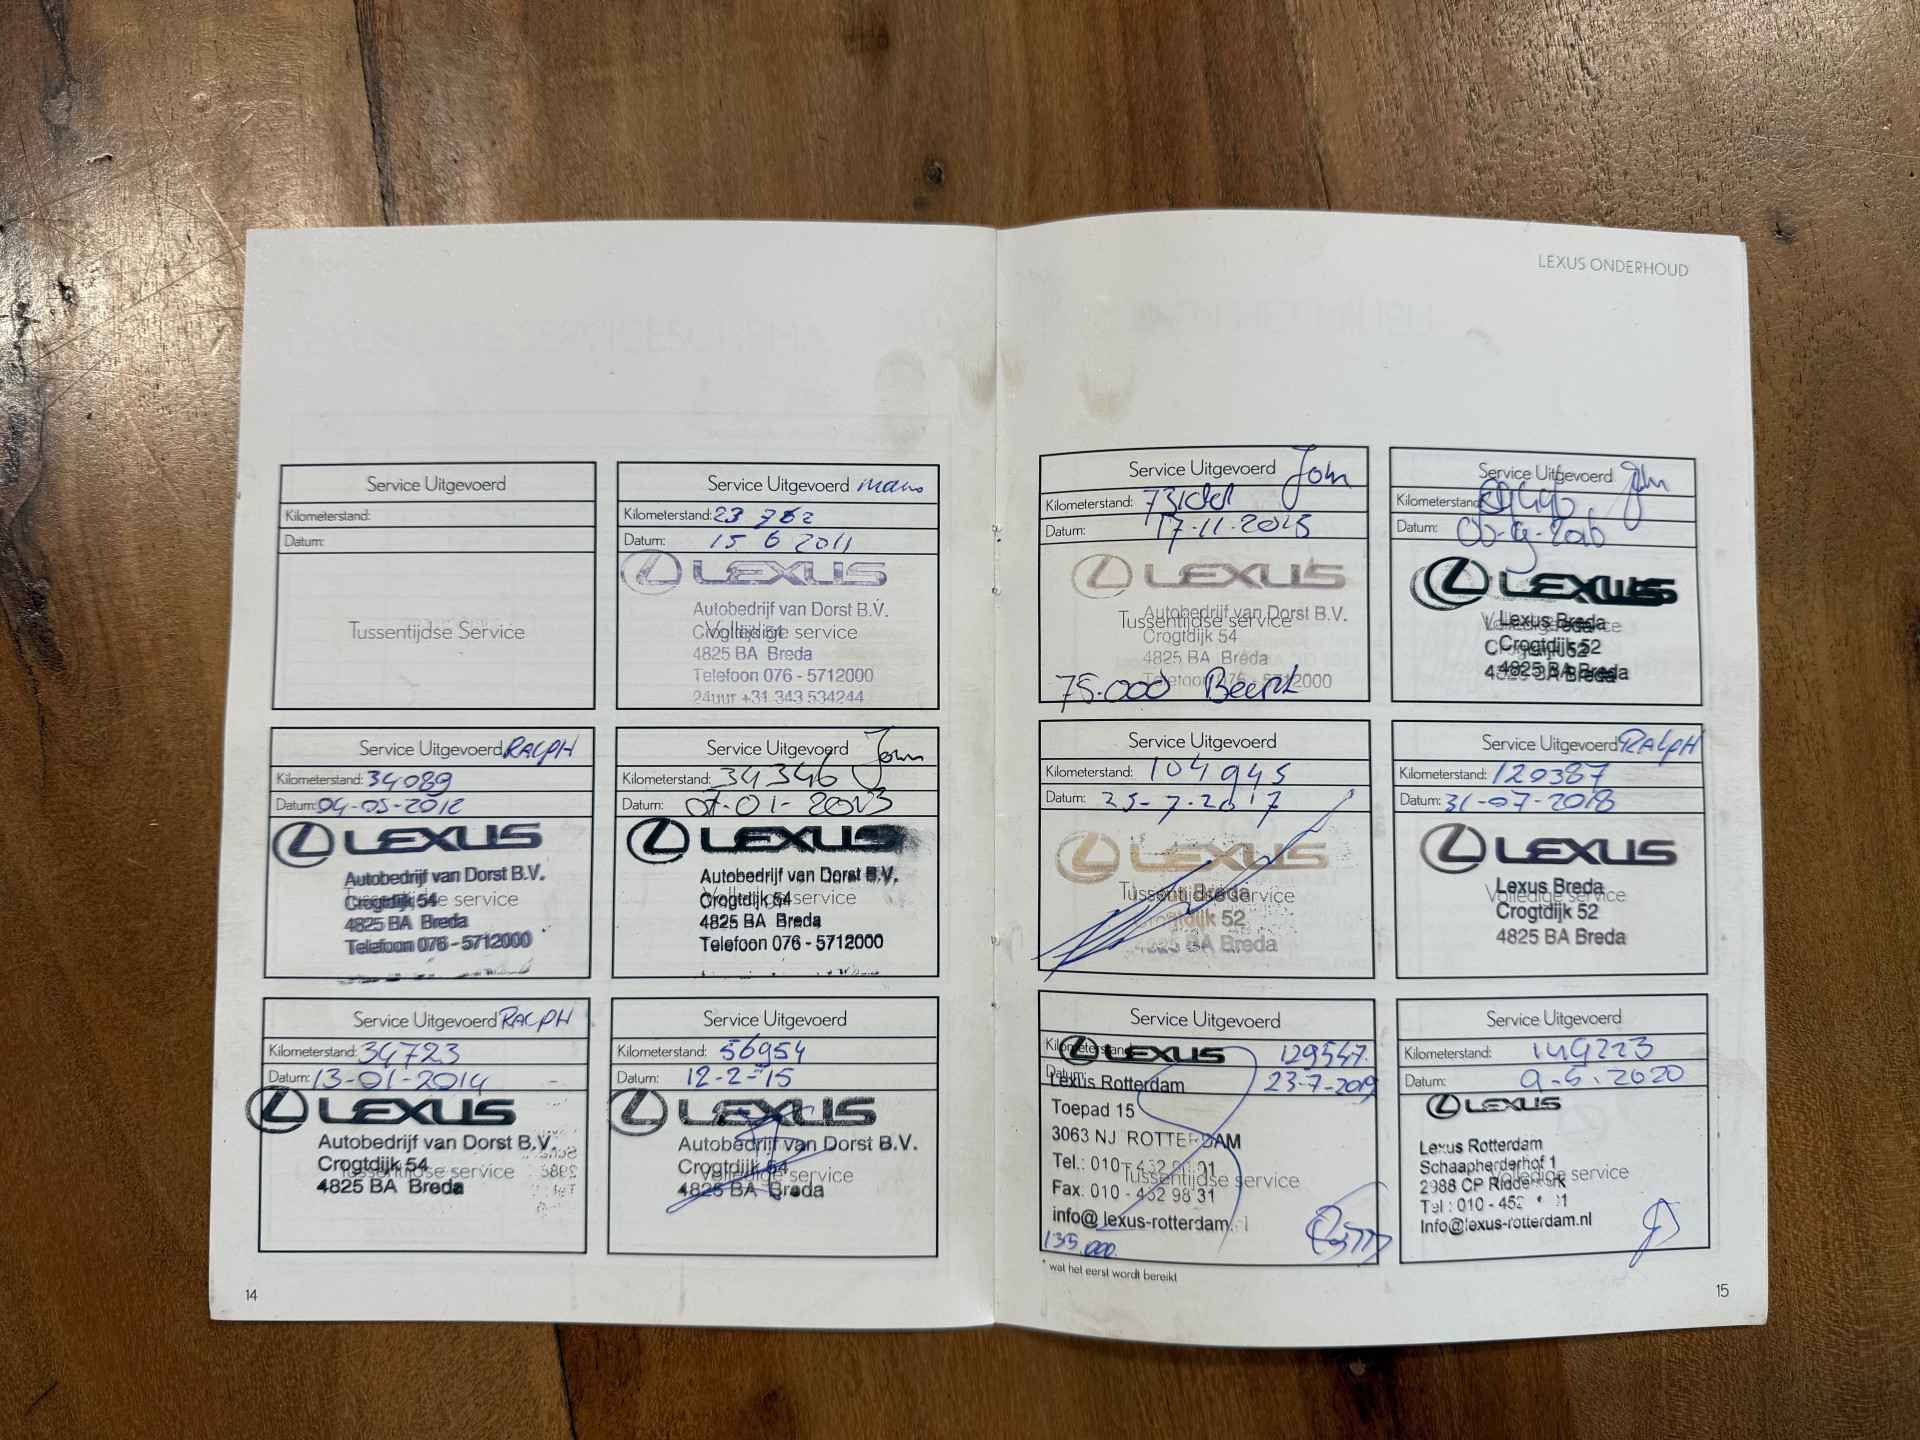 LEXUS ONDERHOUD
Service Uitgevoerd
Kilometerstand:
Datum:
Tussentijdse Service
Service Uitgevoerd
Kilometerstand: 23 762
Datum: 15 6 2011
LEXUS
Autobedrijf van Dorst B.V.
Crogtdijk 54
Volledige service
4825 BA Breda
Telefoon 076 - 5712000
24uur +31 343 534244
Service Uitgevoerd RALPH
Kilometerstand: 34089
Datum: 04-05-2012
LEXUS
Autobedrijf van Dorst B.V.
Crogtdijk 54
Tussentijdse service
4825 BA Breda
Telefoon 076 - 5712000
Service Uitgevoerd John
Kilometerstand: 34346
Datum: 07-01-2013
LEXUS
Autobedrijf van Dorst B.V.
Crogtdijk 54
Volledige service
4825 BA Breda
Telefoon 076 - 5712000
Service Uitgevoerd RALPH
Kilometerstand: 34723
Datum: 13-01-2014
LEXUS
Autobedrijf van Dorst B.V.
Crogtdijk 54
Tussentijdse service
4825 BA Breda
Service Uitgevoerd
Kilometerstand: 56954
Datum: 12-2-15
LEXUS
Autobedrijf van Dorst B.V.
Crogtdijk 54
Volledige service
4825 BA Breda
14
Service Uitgevoerd John
Kilometerstand:
Datum: 17-11-2015
LEXUS
Autobedrijf van Dorst B.V.
Tussentijdse service
Crogtdijk 54
4825 BA Breda
Telefoon 076 - 5712000
75.000 Beurt
Service Uitgevoerd John
Kilometerstand:
Datum:
LEXUS
Lexus Breda
Volledige service
Crogtdijk 52
4825 BA Breda
Service Uitgevoerd
Kilometerstand: 104945
Datum: 25-7-2017
LEXUS
Breda
Tussentijdse service
Crogtdijk 52
4825 BA Breda
Service Uitgevoerd RALPH
Kilometerstand: 120387
Datum: 31-07-2018
LEXUS
Lexus Breda
Volledige service
Crogtdijk 52
4825 BA Breda
Service Uitgevoerd
Kilometerstand: 129547.
LEXUS
Datum: 23-7-2019
Lexus Rotterdam
Toepad 15
3063 NJ ROTTERDAM
Tel.: 010 - 452
Tussentijdse service
Fax. 010 - 452 98 31
info@lexus-rotterdam.nl
135.000.
Service Uitgevoerd
Kilometerstand: 149223
Datum: 9-6.2020
LEXUS
Lexus Rotterdam
Schaapherderhof 1
Volledige service
2988 CP Ridderkerk
Tel : 010 - 452
Info@lexus-rotterdam.nl
* wat het eerst wordt bereikt
15